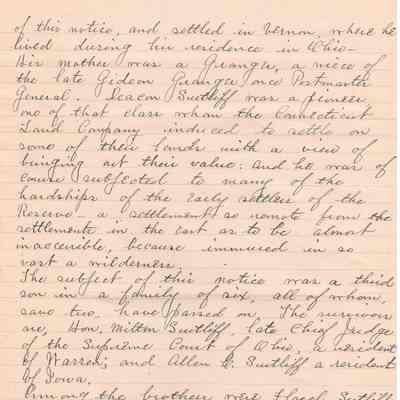 of this notice, and settled in Vernon, where he
lived during his residence in Ohio—
His mother was a Granger, a niece of
the late Gideon Granger once Postmaster
General. Deacon Sutliff was a pioneer
one of that class whom the Connecticut
Land Company induced to settle on
some of their lands with a view of
bringing out their value: and he was of
course subjected to many of the
hardships of the early settlers of the
Reserve — a settlement so remote from the
settlements in the east as to be almost
inaccessible, because immured in so
vast a wilderness.
The subject of this notice was a third
son in a family of six, all of whom,
save two, have passed on. The survivors
are, Hon. Milton Sutliff, late Chief Judge
of the Supreme Court of Ohio, a resident
of Warren; and Allen Sutliff a resident
of Iowa.
Among the brothers were Flavel Sutliff